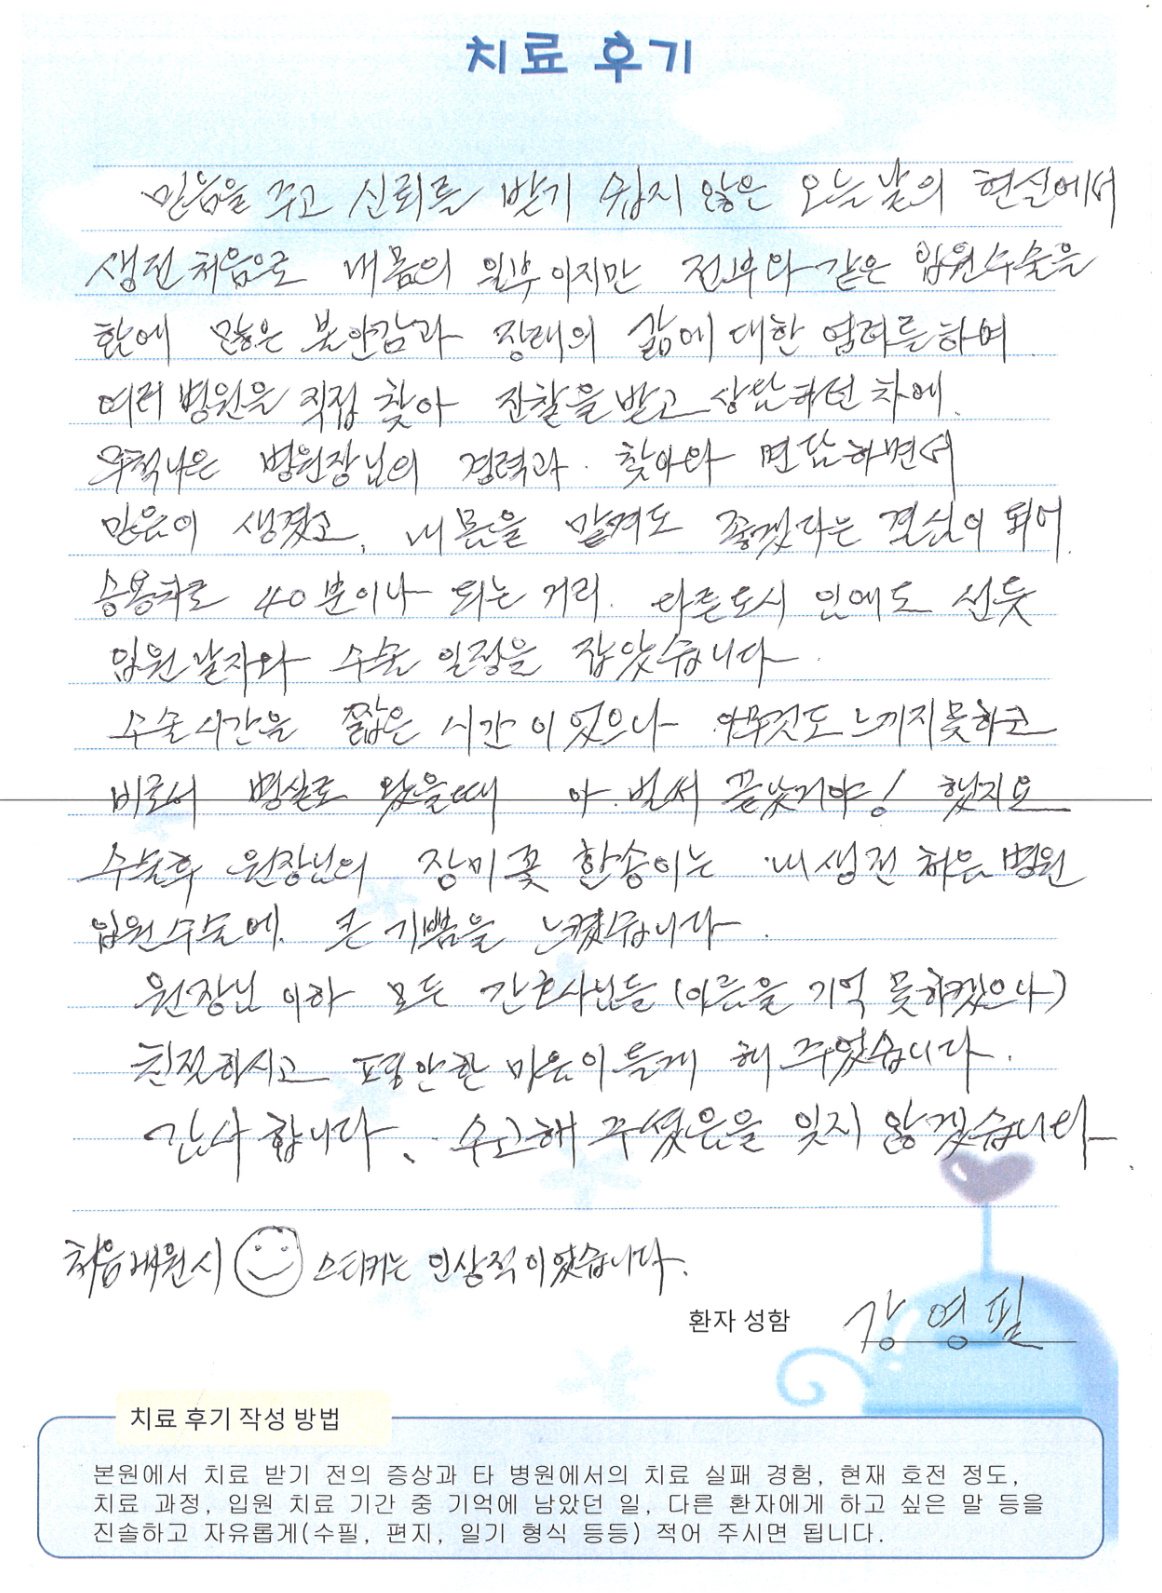 치료 후기
믿음을 주고 신뢰를 받기 쉽지 않은 오늘날의 현실에서
생전처음으로 내몸의 일부이지만 전부와 같은 입원수술을
함에 많은 불안감과 장래의 삶에 대한 염려를하며
여러병원을 직접 찾아 진찰을받고 상담하던 차에,
병원장님의 경력과. 찾아와 면담하면서
믿음이 생겼고, 내 몸을 맡겨도 좋겠다는 결심이 되어,
승용차로 40분이나 되는 거리. 다른도시 인데도 선듯
입원날자와 수술 일정을 잡았습니다.
수술시간은 짧은 시간이었으나 아무것도 느끼지못하고
비로서 병실로 왔을때 아. 벌써 끝난거야! 했지요
수술후 원장님의 장미꽃 한송이는 내생전 처음 병원
입원수술에. 큰 기쁨을 느꼈습니다.
원장님 이하 모든 간호사님들(이름을 기억 못하겠으나)
친절하시고 편안한 마음이들게 해 주었습니다.
감사합니다. 수고해 주셨음을 잊지 않겠습니다.
처음내원시 스티커는 인상적이었습니다.
환자 성함 강영필
치료 후기 작성 방법
본원에서 치료 받기 전의 증상과 타 병원에서의 치료 실패 경험, 현재 호전 정도,
치료 과정, 입원 치료 기간 중 기억에 남았던 일, 다른 환자에게 하고 싶은 말 등을
진솔하고 자유롭게(수필, 편지, 일기 형식 등등) 적어 주시면 됩니다.